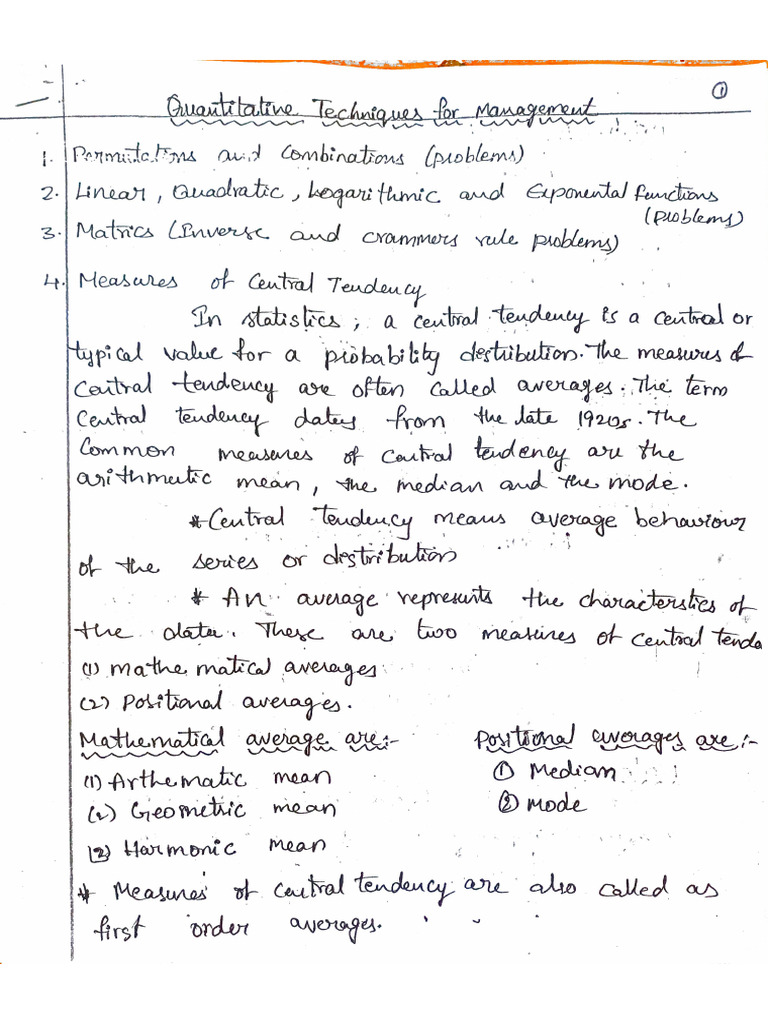 ①
Quantitative Techniques for Management
1. Permutations and Combinations (problems)
2. Linear, Quadratic, Logarithmic and Exponental functions
(problems)
3. Matrics (Inverse and crammers rule problems)
4. Measures of Central Tendency
In statistics, a central tendency is a central or
typical value for a probability distribution. The measures of
Central tendency are often called averages. The term
Central tendency dates from the late 1920s. The
Common measures of Central tendency are the
arithmetic mean, the median and the mode.
* Central Tendency means average behaviour
of the series or distribution
* An average represents the characterstics of
the data. These are two measures of central tende
(1) mathematical averages
(2) Positional averages.
Mathematical average are:- Positional averages are:-
(1) Arthematic mean ① Median
(2) Geometric mean ② Mode
(3) Harmonic mean
* Measures of Central tendency are also called as
first order averages.